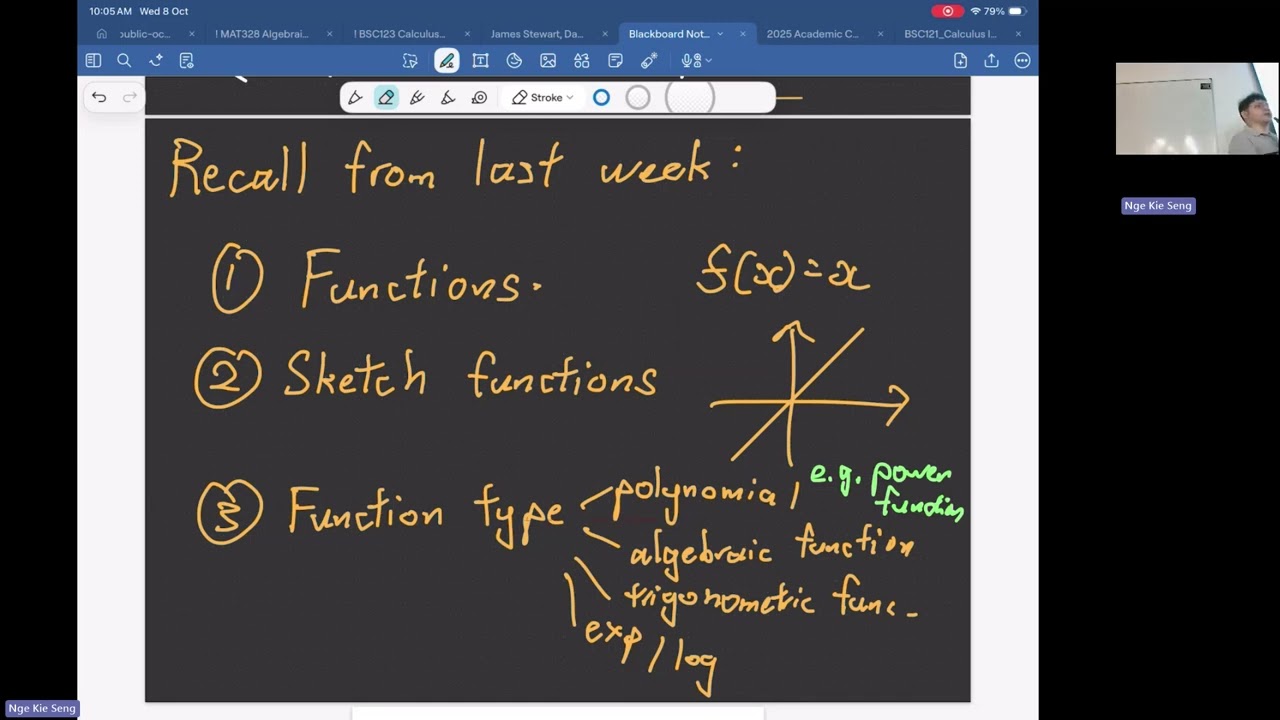 10:05 AM Wed 8 Oct
79%
public-oc...
! MAT328 Algebrai...
! BSC123 Calculus...
James Stewart, Da...
Blackboard Not...
2025 Academic C...
BSC121_Calculus I...
Stroke
Recall from last week:
① Functions.
f(x)=x
② Sketch functions
③ Function type
polynomial
e.g. power
function
algebraic function
trigonometric func.
exp/log
Nge Kie Seng
Nge Kie Seng